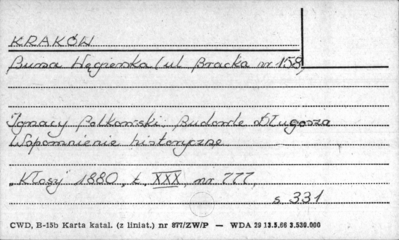 KRAKÓW
Bursa Węgierska (ul. Bracka nr 158)
Ignacy Polkowski. Budowle Długosza
Wspomnienie historyczne
„Kłosy" 1880, t. XXX, nr 777,
s. 331
CWD, B-15b Karta katal. (z liniat.) nr 877/ZW/P — WDA 29 12.3.66 2.530.000